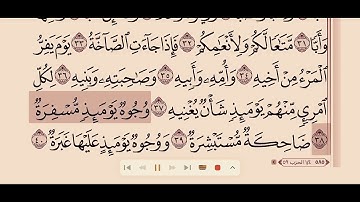 وَأَبًّا ٣١ مَّتَٰعًا لَّكُمْ وَلِأَنْعَٰمِكُمْ ٣٢ فَإِذَا جَآءَتِ ٱلصَّآخَّةُ ٣٣ يَوْمَ يَفِرُّ
ٱلْمَرْءُ مِنْ أَخِيهِ ٣٤ وَأُمِّهِۦ وَأَبِيهِ ٣٥ وَصَٰحِبَتِهِۦ وَبَنِيهِ ٣٦ لِكُلِّ
ٱمْرِئٍ مِّنْهُمْ يَوْمَئِذٍ شَأْنٌ يُغْنِيهِ ٣٧ وُجُوهٌ يَوْمَئِذٍ مُّسْفِرَةٌ
٣٨ ضَاحِكَةٌ مُّسْتَبْشِرَةٌ ٣٩ وَوُجُوهٌ يَوْمَئِذٍ عَلَيْهَا غَبَرَةٌ ٤٠
٥٨٥ ¼ الحزب ٥٩